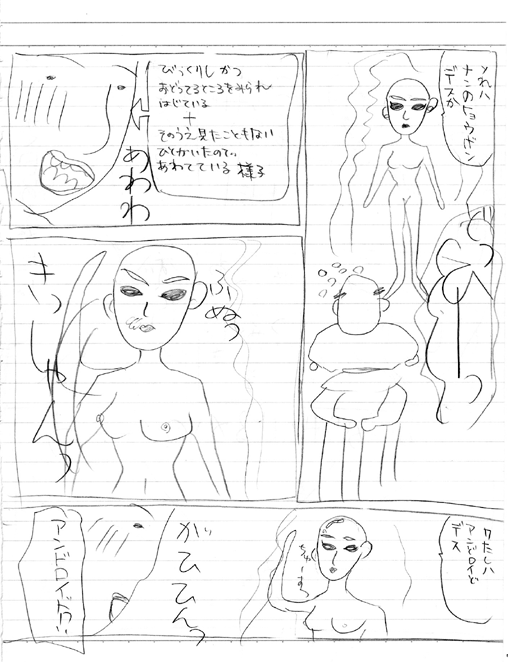 ソれハ
ナンのヒョウゲン
デスか
びっくりし かつ
おどってるところをみられ
はじている
+
そのうえ見たこともない
ひとがいたので、
あわてている 様子
あわわ
ふぬっ
きっしゃんっ
ワたしハ
アンドロイど
デス
がひひんっ
アンドロイドっ